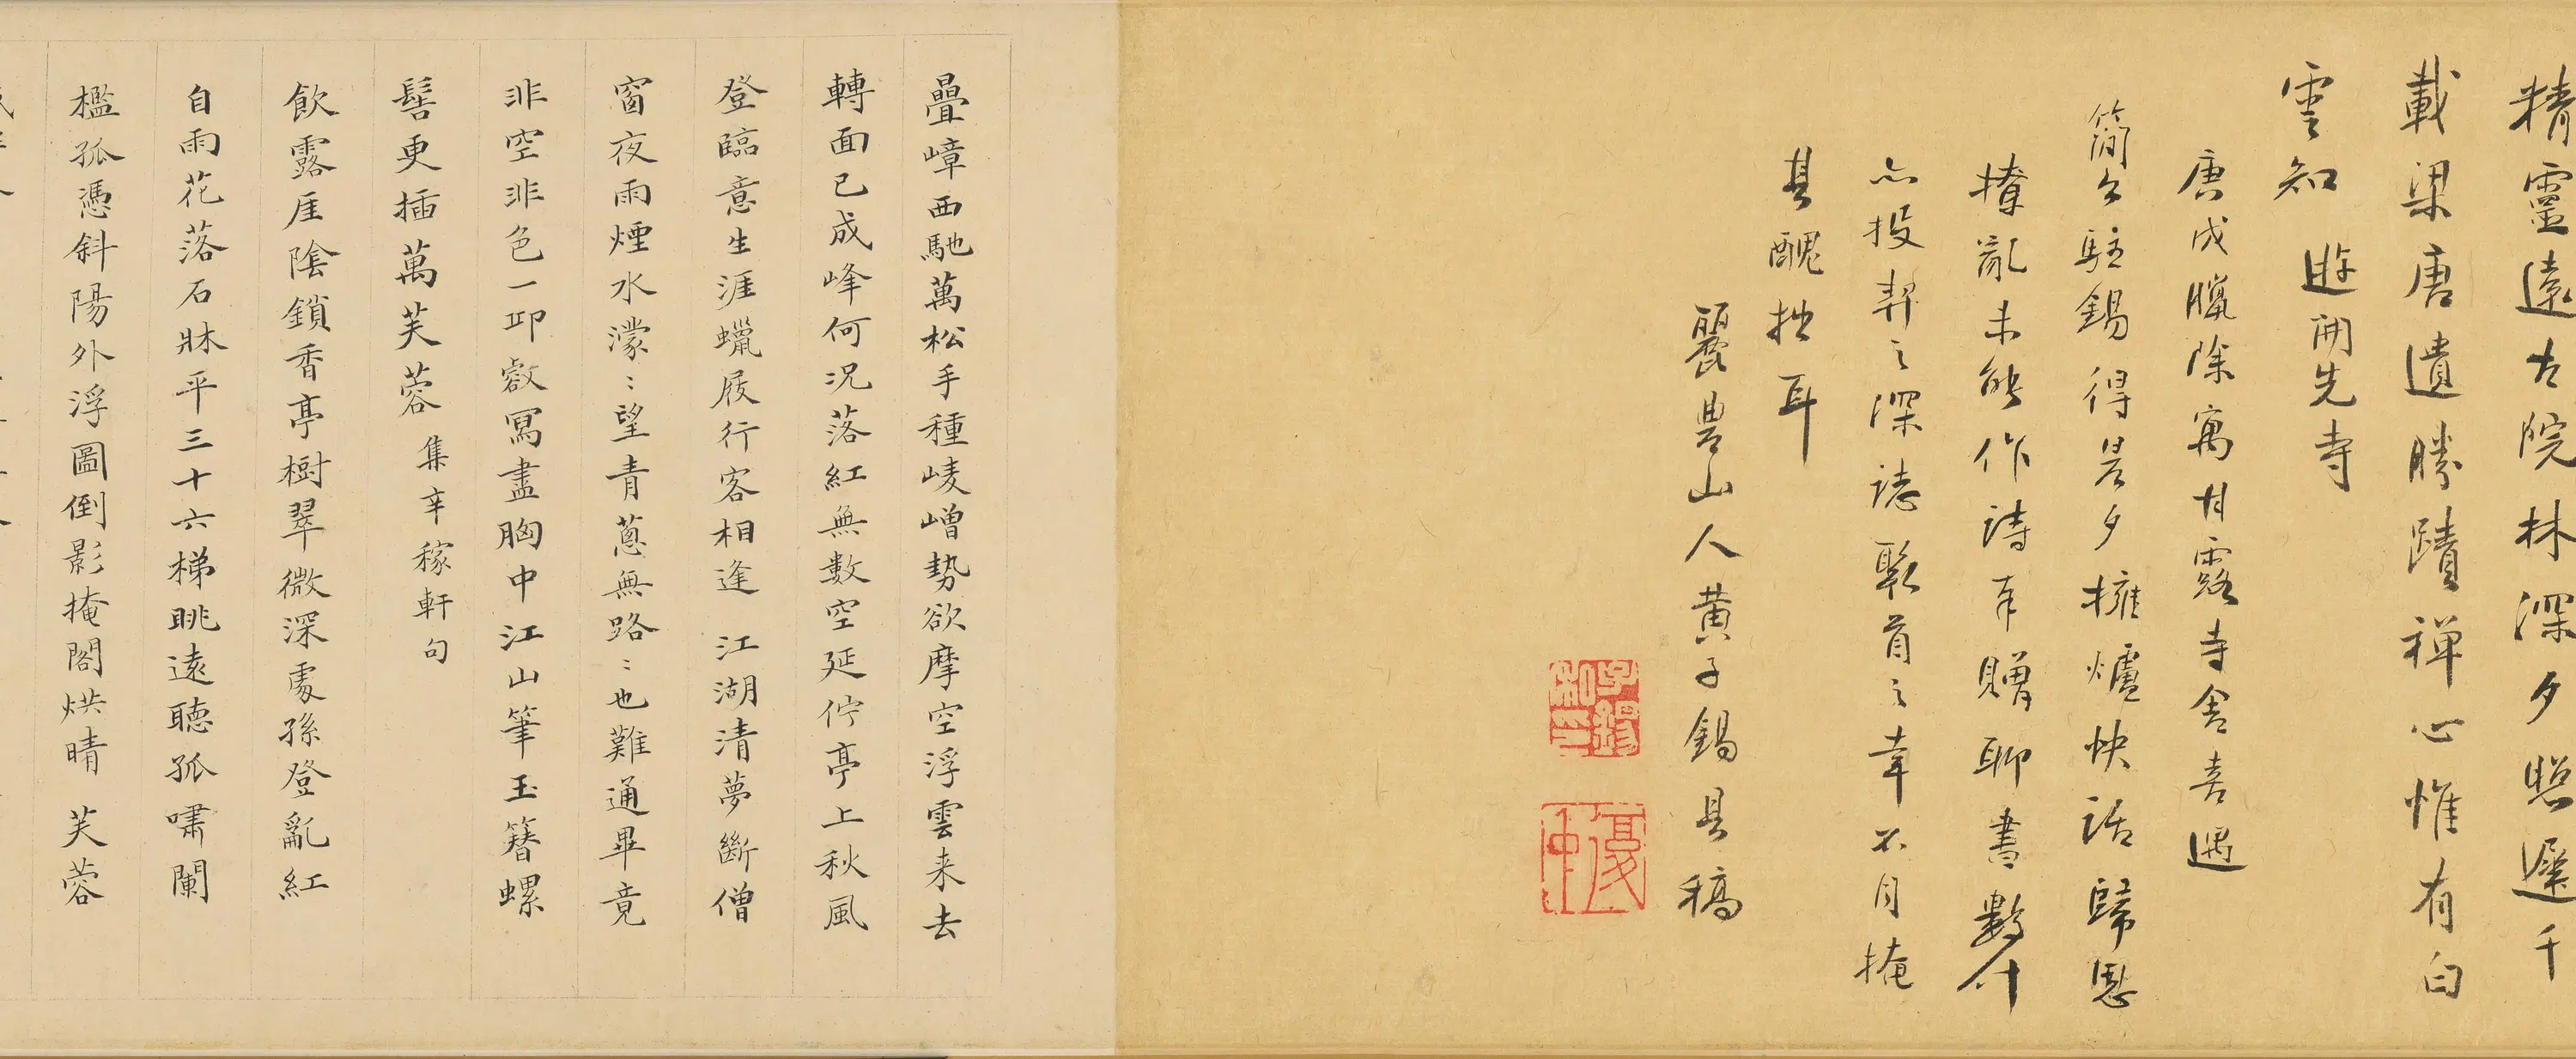 精靈遠古院林深夕照遲千
載梁唐遺勝蹟禅心惟有白
雲知 遊開先寺
唐戌臘除寓甘露寺舍喜遇
簡公駐錫得晨夕擁爐快話歸思
撩亂未能作詩奉贈聊書數什
心投契之深誌聚首之幸不自掩
其醜拙耳
麗豊山人黄子錫具稿
疊嶂西馳萬松手種崚嶒勢欲摩空浮雲来去
轉面已成峰何況落紅無數空延佇亭上秋風
登臨意生涯蠟屐行客相逢 江湖清夢斷僧
窗夜雨煙水濛〻望青蔥無路〻也難通畢竟
非空非色一邱壑冩盡胸中江山筆玉簪螺
髻更插萬芙蓉 集辛稼軒句
飲露厓陰鎖香亭樹翠微深處孫登亂紅
自雨花落石牀平三十六梯眺遠聴孤嘯闌
檻孤憑斜陽外浮圖倒影掩閣烘晴 芙蓉